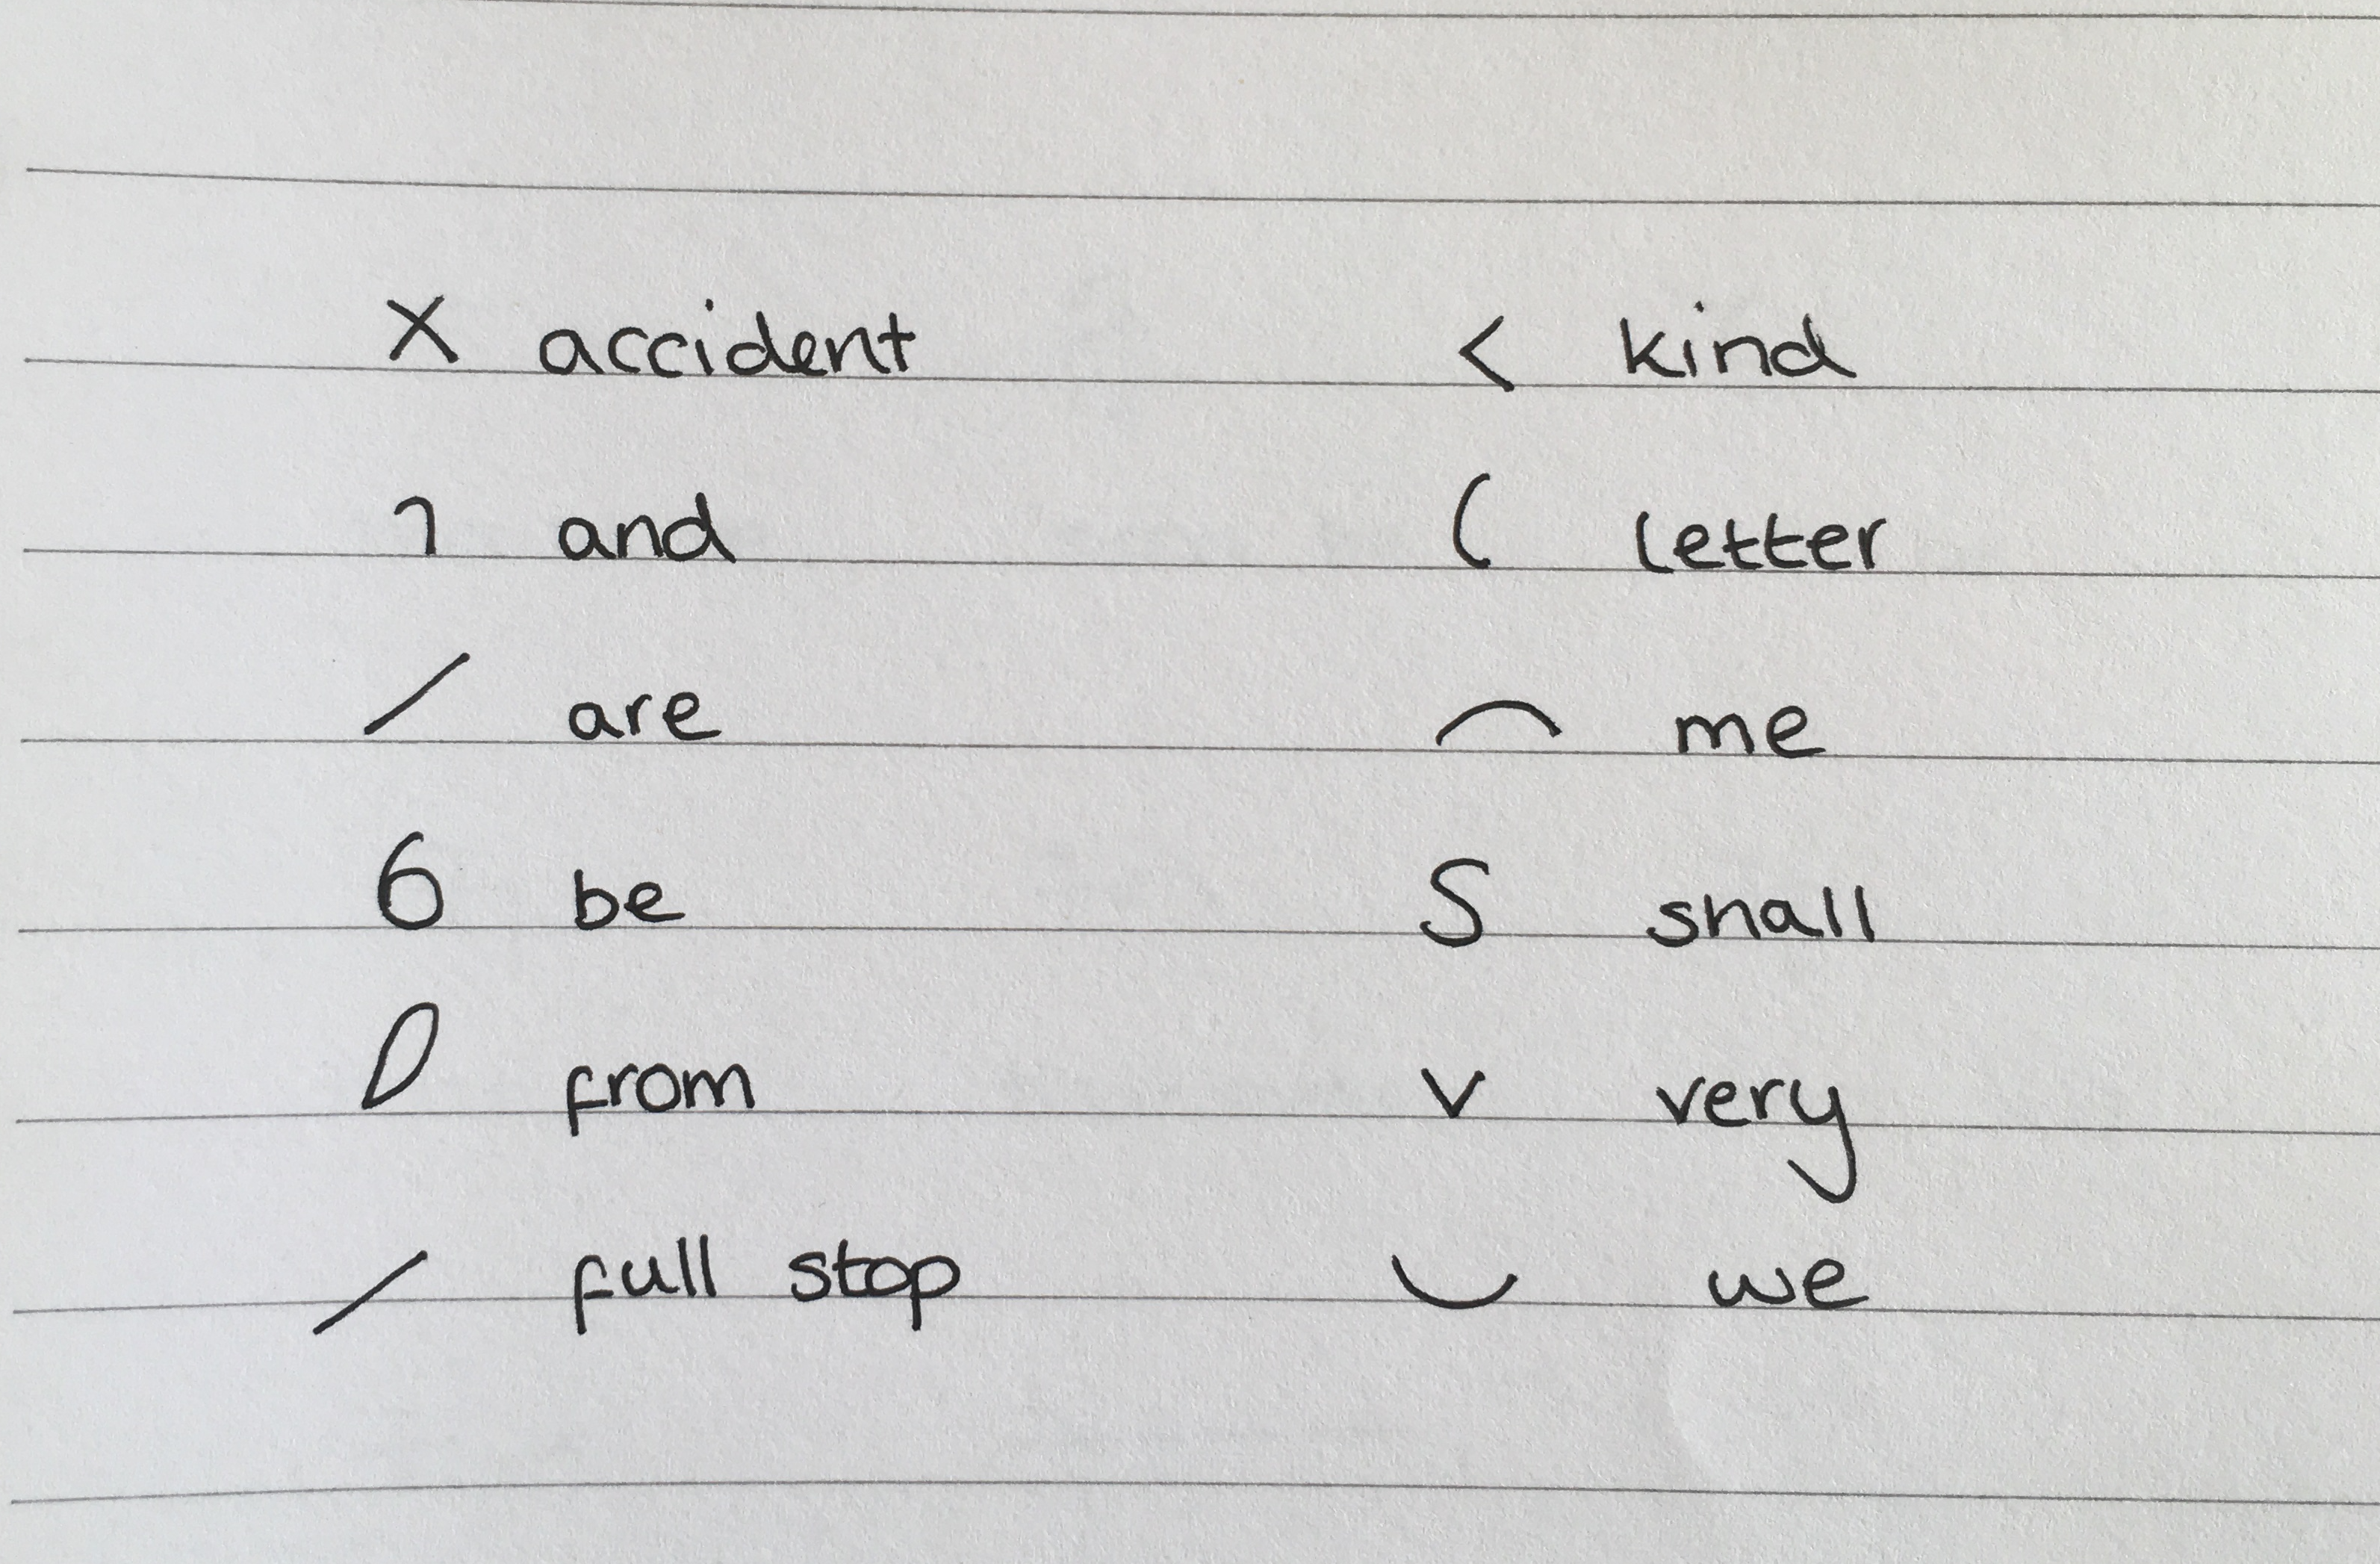 X accident < kind
┐ and ( letter
/ are ⌒ me
6 be S shall
from v very
/ full stop ‿ we